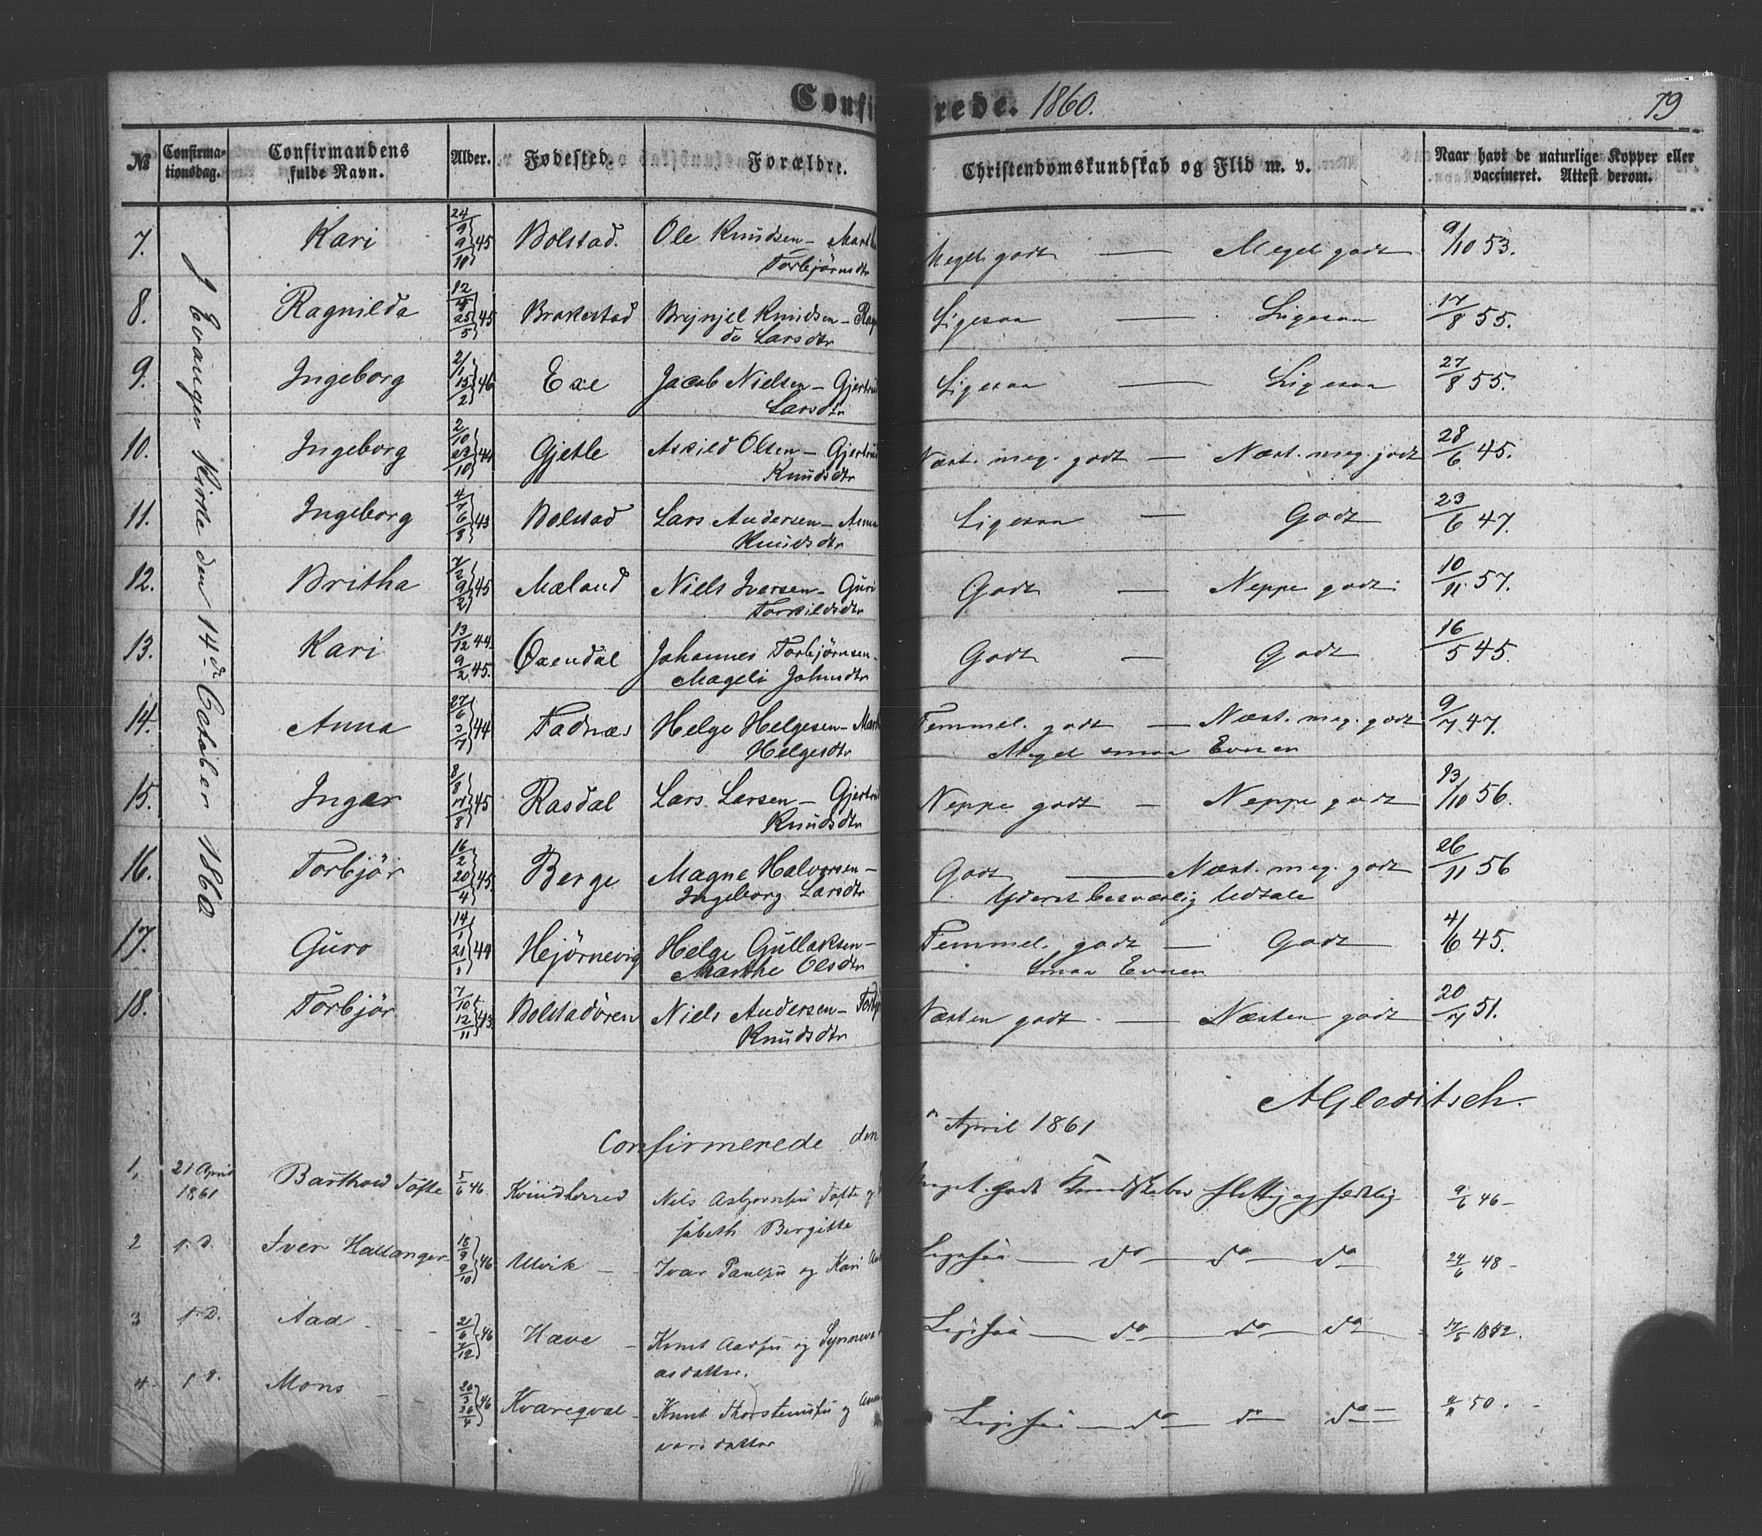 Confi rede. 1860. 79
№ Confirma-tionsdag. Confirmandens fulde Navn. Alder. Fødested. Forældre. Christendomskundskab og Flid m. v. Naar havt de naturlige Kopper eller vaccineret. Attest derom.
I Evanger Kirke den 14de October 1860
7. Kari 24/9 9/10 45 Bolstad. Ole Knudsen – Marth Meget godt — Meget godt 9/10 53.
Torbjørnsdtr
8. Ragnilda 12/4 25/5 45 Brakestad Brynjel Knudsen – Ragn Ligesaa — Ligesaa 17/8 55.
da Larsdtr
9. Ingeborg 21/1 15/2 46 Exe Jacob Nielsen – Gjertru Ligesaa — Ligesaa 27/8 55.
Larsdtr
10. Ingeborg 2/10 23/10 44 Gjetle Askild Olsen – Gjertru Næst. meg. godt — Næst. meg. godt 28/6 45.
Knudsdtr
11. Ingeborg 43 Bolstad Lars Andersen – Anna Ligesaa — Godt 23/6 47.
Knudsdtr
12. Britha 45 Mæland Niels Iversen – Guri Godt — Neppe godt 10/11 57.
Torkildsdtr
13. Kari 13/12 44. 9/2 45. Oxendal Johannes Torbjørnsen – Godt — Godt 16/5 45.
Mageli Johnsdtr
14. Anna 27/6 3/7 44 Fadnæs Helge Helgesen – Mart Temmel. godt — Næst. meg. godt 9/7 47.
Helgesdtr Meget smaa Evner
15. Inger 8/8 17/8 45 Rasdal Lars Larsen – Gjertru Neppe godt — Neppe godt 23/10 56.
Knudsdtr
16. Torbjør 16/2 20/4 45. Berge Magne Halvorsen – Godt — Næst. meg. godt 26/11 56
Ingeborg Larsdtr Yderst besværlig Udtale
17. Guro 14/1 21/1 44 Hjørnevig Helge Gullaksen – Temmel. godt — Godt 4/6 45.
Marthe Olsdtr Smaa Evner
18. Torbjør 7/10 12/11 43 Bolstadøren Niels Andersen – Næsten godt. — Næsten godt 20/7 51.
Knudsdtr
AGloditsch.
Confirmerede den April 1861
1, 21 April 1861 Barthold Tofte 5/6 46 Kvindherred Nils Asbjørnsen Tofte og meget godt Kundskaber flittig og sædelig 9/6 46 –
sabeth Bergitte
2 s. D. Iver Hallanger 15/9 9/10 46 Ulvik – Ivar Paulsen og Kari Ligesaa — do do do 24/6 48 –
3 s. D. Aad 46 Hæve – Knut Aadsen og Synneva Ligesaa — do do do 1852.
asdatter.
4. s D. Mons – 20/3 26/4 46 Kvareqval – Knut Thorstensen og Anna Ligesaa — do do do 50.
varsdatter